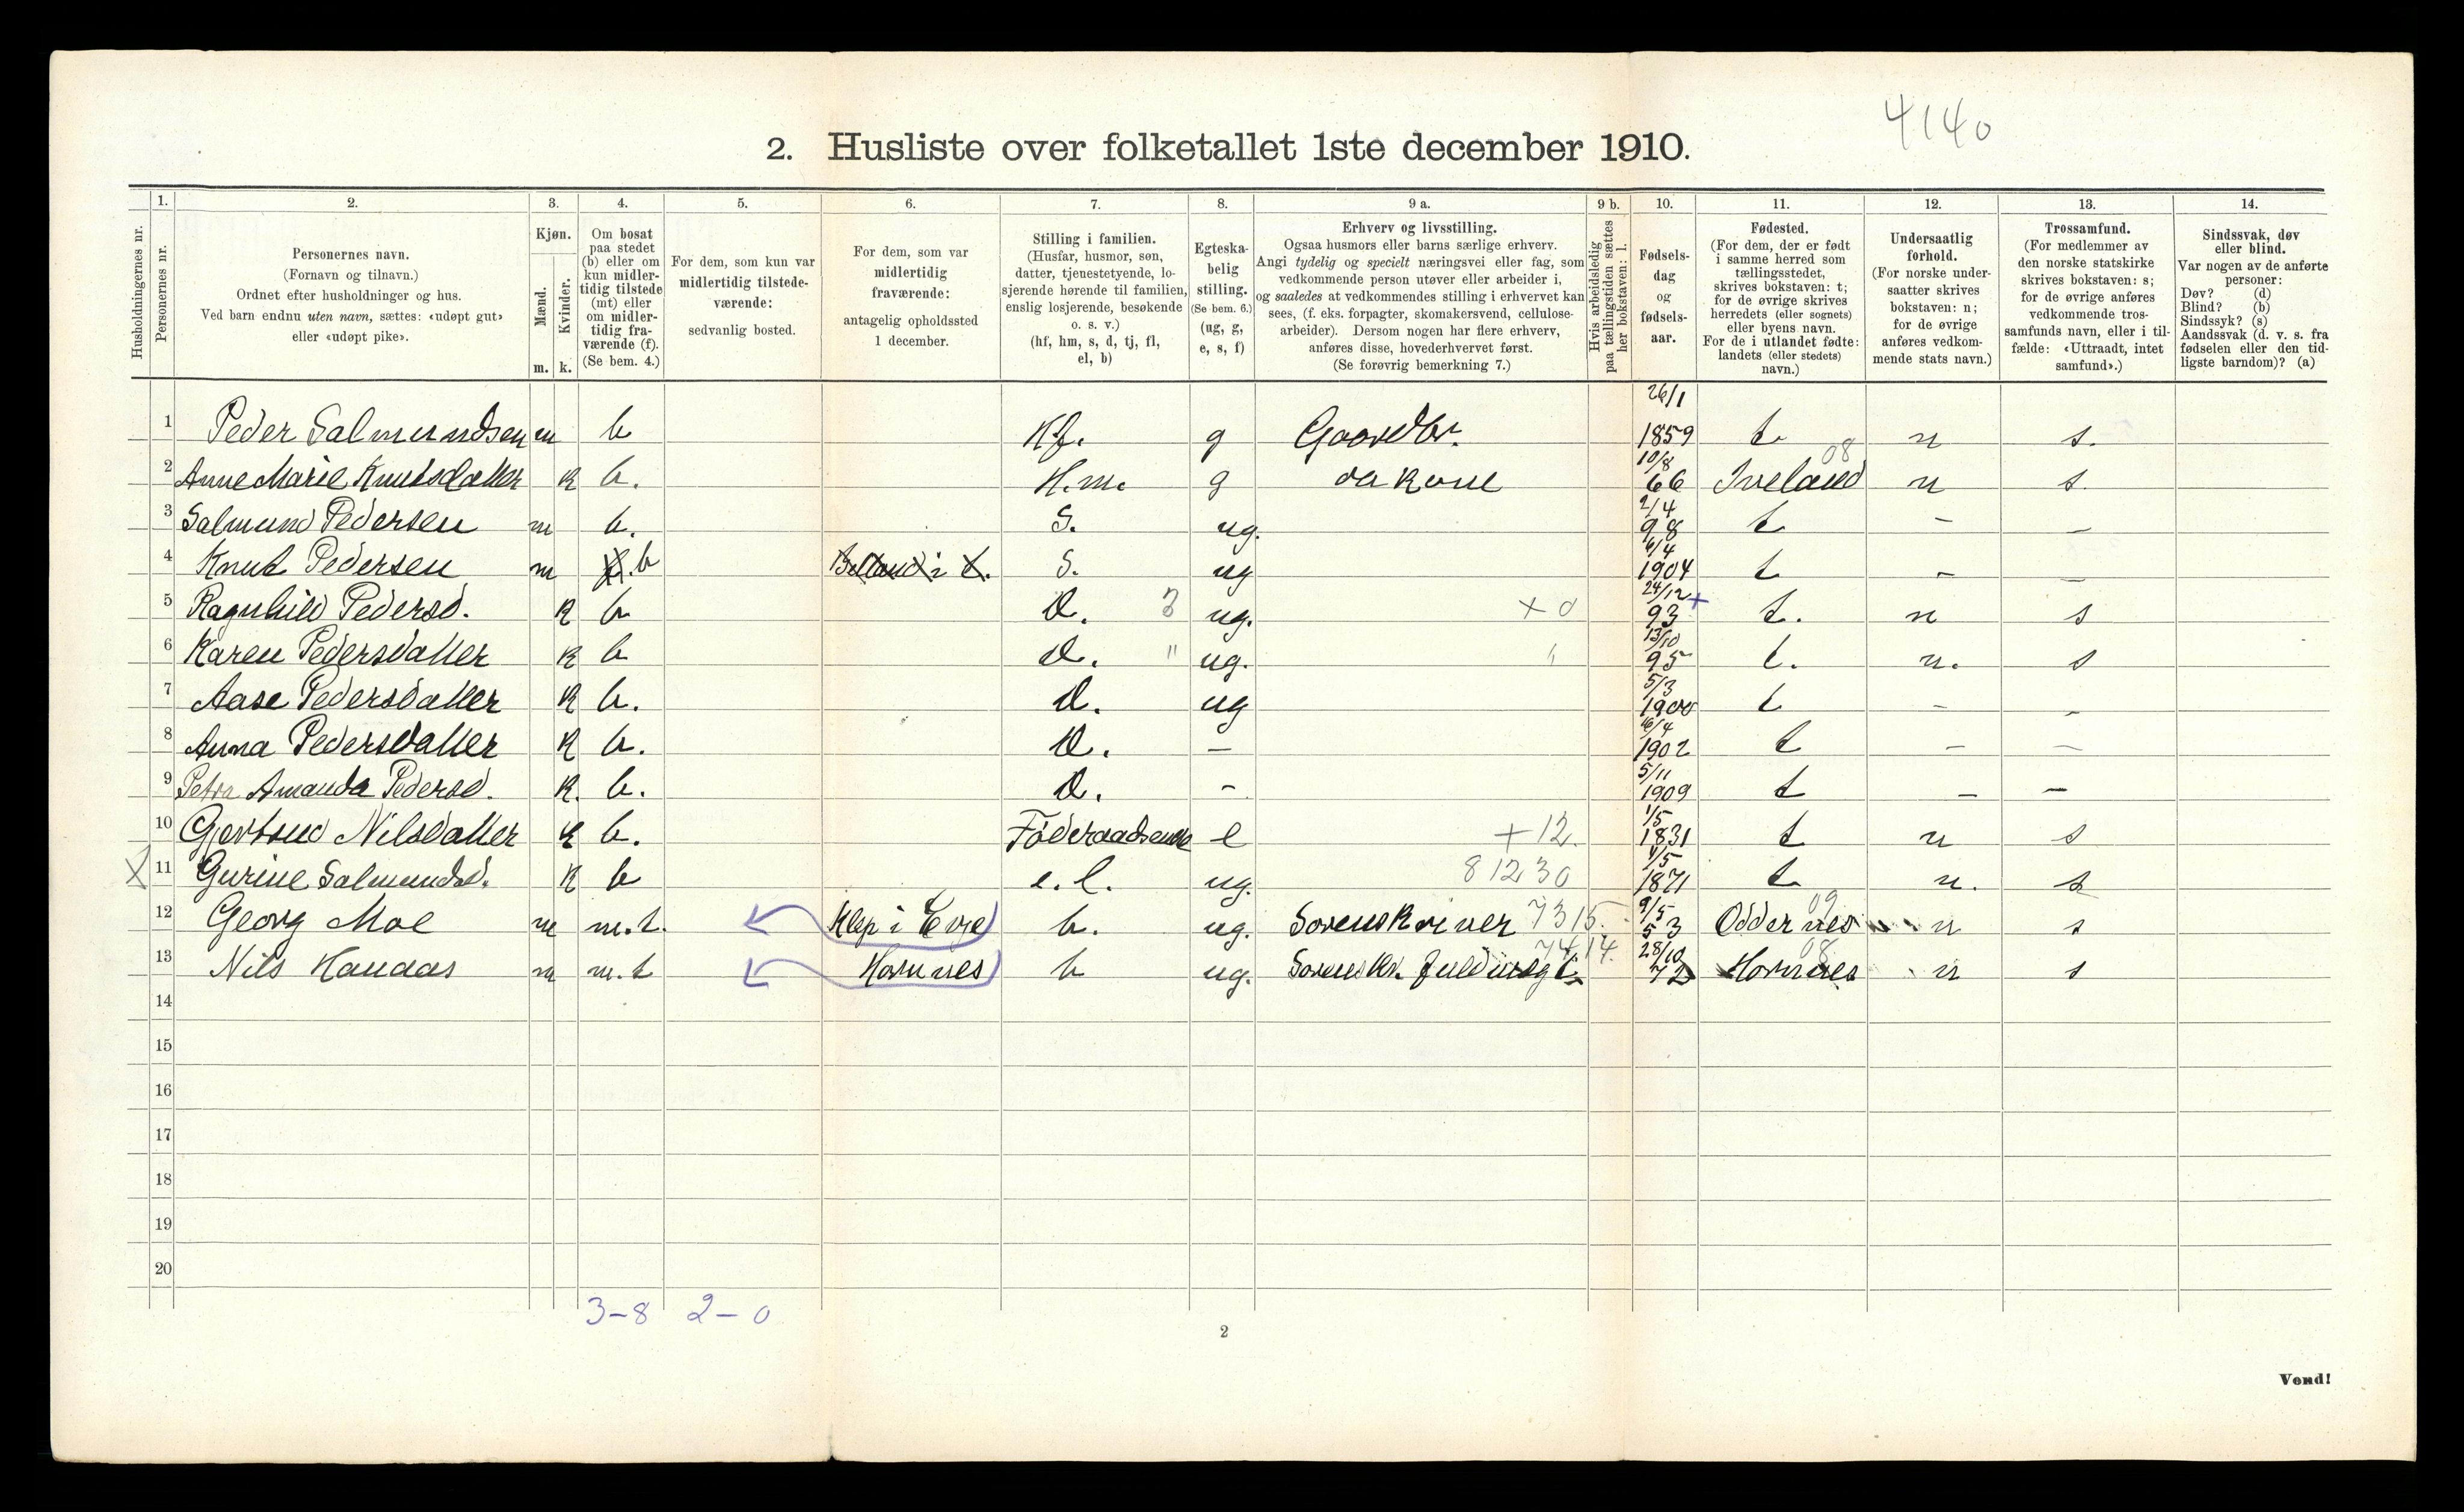 4140
2. Husliste over folketallet 1ste december 1910.
Husholdningernes nr.
1. Personernes nr.
2. Personernes navn. (Fornavn og tilnavn.) Ordnet efter husholdninger og hus. Ved barn endnu uten navn, sættes: «udøpt gut» eller «udøpt pike».
3. Kjøn. Mænd. m. Kvinder. k.
4. Om bosat paa stedet (b) eller om kun midlertidig tilstede (mt) eller om midlertidig fraværende (f). (Se bem. 4.)
5. For dem, som kun var midlertidig tilstedeværende: sedvanlig bosted.
6. For dem, som var midlertidig fraværende: antagelig opholdssted 1 december.
7. Stilling i familien. (Husfar, husmor, søn, datter, tjenestetyende, losjerende hørende til familien, enslig losjerende, besøkende o. s. v.) (hf, hm, s, d, tj, fl, el, b)
8. Egteskabelig stilling. (Se bem. 6.) (ug, g, e, s, f)
9 a. Erhverv og livsstilling. Ogsaa husmors eller barns særlige erhverv. Angi tydelig og specielt næringsvei eller fag, som vedkommende person utøver eller arbeider i, og saaledes at vedkommendes stilling i erhvervet kan sees, (f. eks. forpagter, skomakersvend, cellulosearbeider). Dersom nogen har flere erhverv, anføres disse, hovederhvervet først. (Se forøvrig bemerkning 7.)
9 b. Hvis arbeidsledig paa tællingstiden sættes her bokstaven: l.
10. Fødselsdag og fødselsaar.
11. Fødested. (For dem, der er født i samme herred som tællingsstedet, skrives bokstaven: t; for de øvrige skrives herredets (eller sognets) eller byens navn. For de i utlandet fødte: landets (eller stedets) navn.)
12. Undersaatlig forhold. (For norske undersaatter skrives bokstaven: n; for de øvrige anføres vedkommende stats navn.)
13. Trossamfund. (For medlemmer av den norske statskirke skrives bokstaven: s; for de øvrige anføres vedkommende trossamfunds navn, eller i tilfælde: «Uttraadt, intet samfund».)
14. Sindssvak, døv eller blind. Var nogen av de anførte personer: Døv? (d) Blind? (b) Sindssyk? (s) Aandssvak (d. v. s. fra fødselen eller den tidligste barndom)? (a)
1 Peder Salmundsen m b Hf. g Gaardbr. 26/1 1859 t. n s.
2 Anne Marie Knutsdatter k b. H.m. g da kone 10/8 66 Iveland 08 n s.
3 Salmund Pedersen m b. S. ug. 2/4 98 t - -
4 Knut Pedersen m f. b S. ug 6/4 1904 t - -
5 Ragnhild Pedersd. k b D. 3 ug. + 0 24/12 93 + t. n s
6 Karen Pedersdatter k b D. " ug. 13/10 95 t. n. s
7 Aase Pedersdatter k b. D. ug 5/3 1900 t - -
8 Anna Pedersdatter k b. D. - 16/4 1902 t - -
9 Petra Amanda Pedersd. k. b. D. - 5/11 1909 t - -
10 Gjertrud Nilsdatter k b. e +12. 1/5 1831 t n s
X 11 Gurine Salmundsd. k b e.l. ug. 81230 1/5 1871 t n. s
12 Georg Moe m m.t. Klep i Evje b. ug. Sorenskriver 7315. 9/5 53 Oddernes 09 n s
13 Nils Haugaas m m.t Hornnes b ug. Sorenskr. fuldmegt. 7414. 28/10 72 Hornnes 08 n s
14
15
16
17
18
19
20
3-8 2-0
2
Vend!